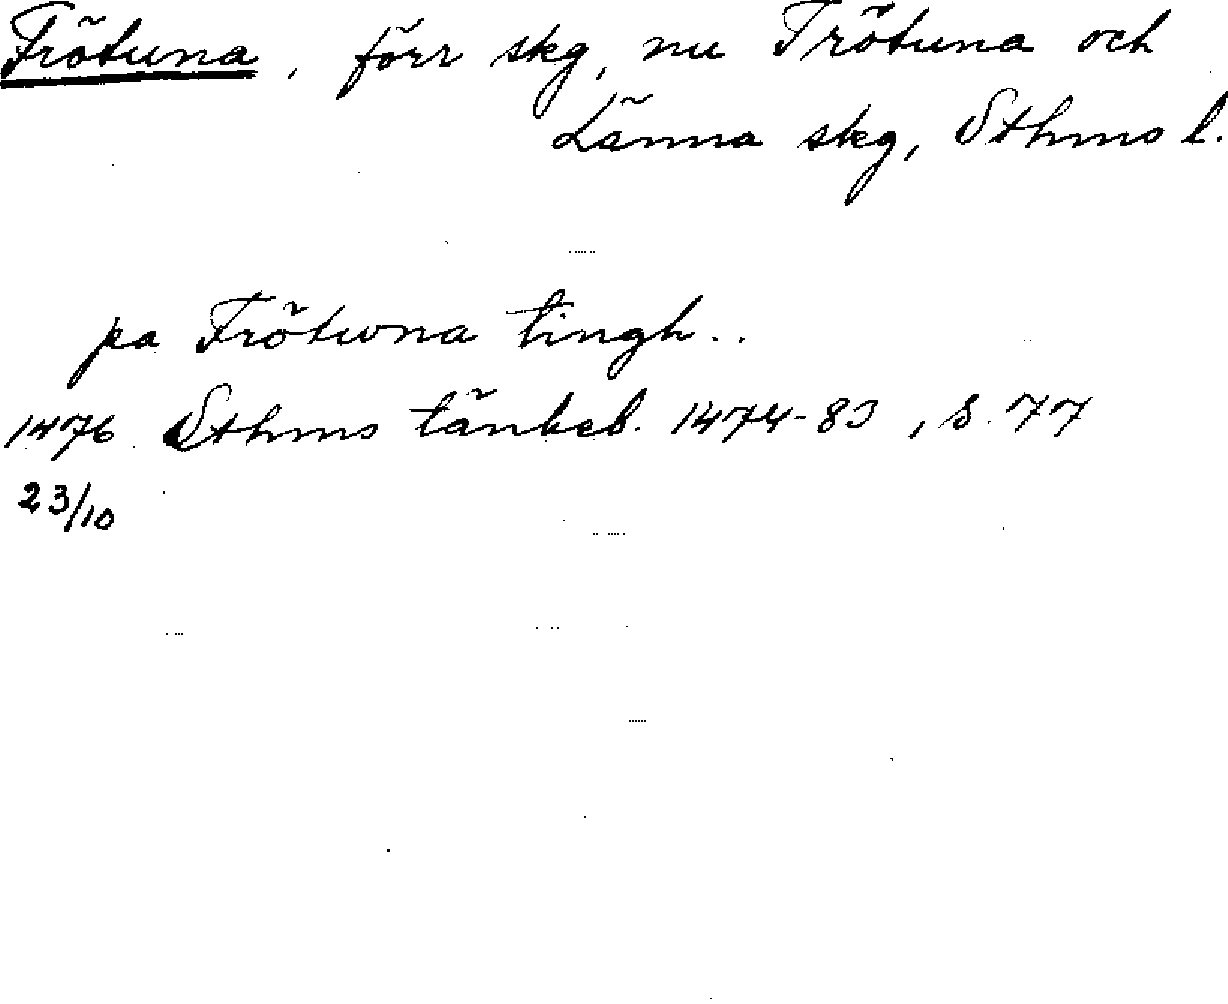 Frötuna, förr skg, nu Frötuna och
Länna skg, Sthms l.
pa Frötwna tingh..
1476 Sthms tänkeb. 1474-83, s. 77
23/10